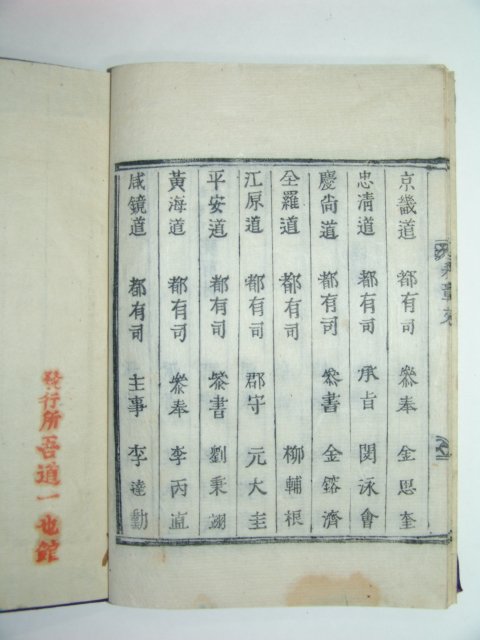 京畿道 都有司 叅奉 金思奎
忠清道 都有司 承旨 閔泳會
慶尙道 都有司 叅書 金鎔濟
全羅道 都有司 柳輔根
江原道 都有司 郡守 元大圭
平安道 都有司 叅書 劉秉翊
黃海道 都有司 叅奉 李丙直
咸鏡道 都有司 主事 李達勳
發行所吾道一也館